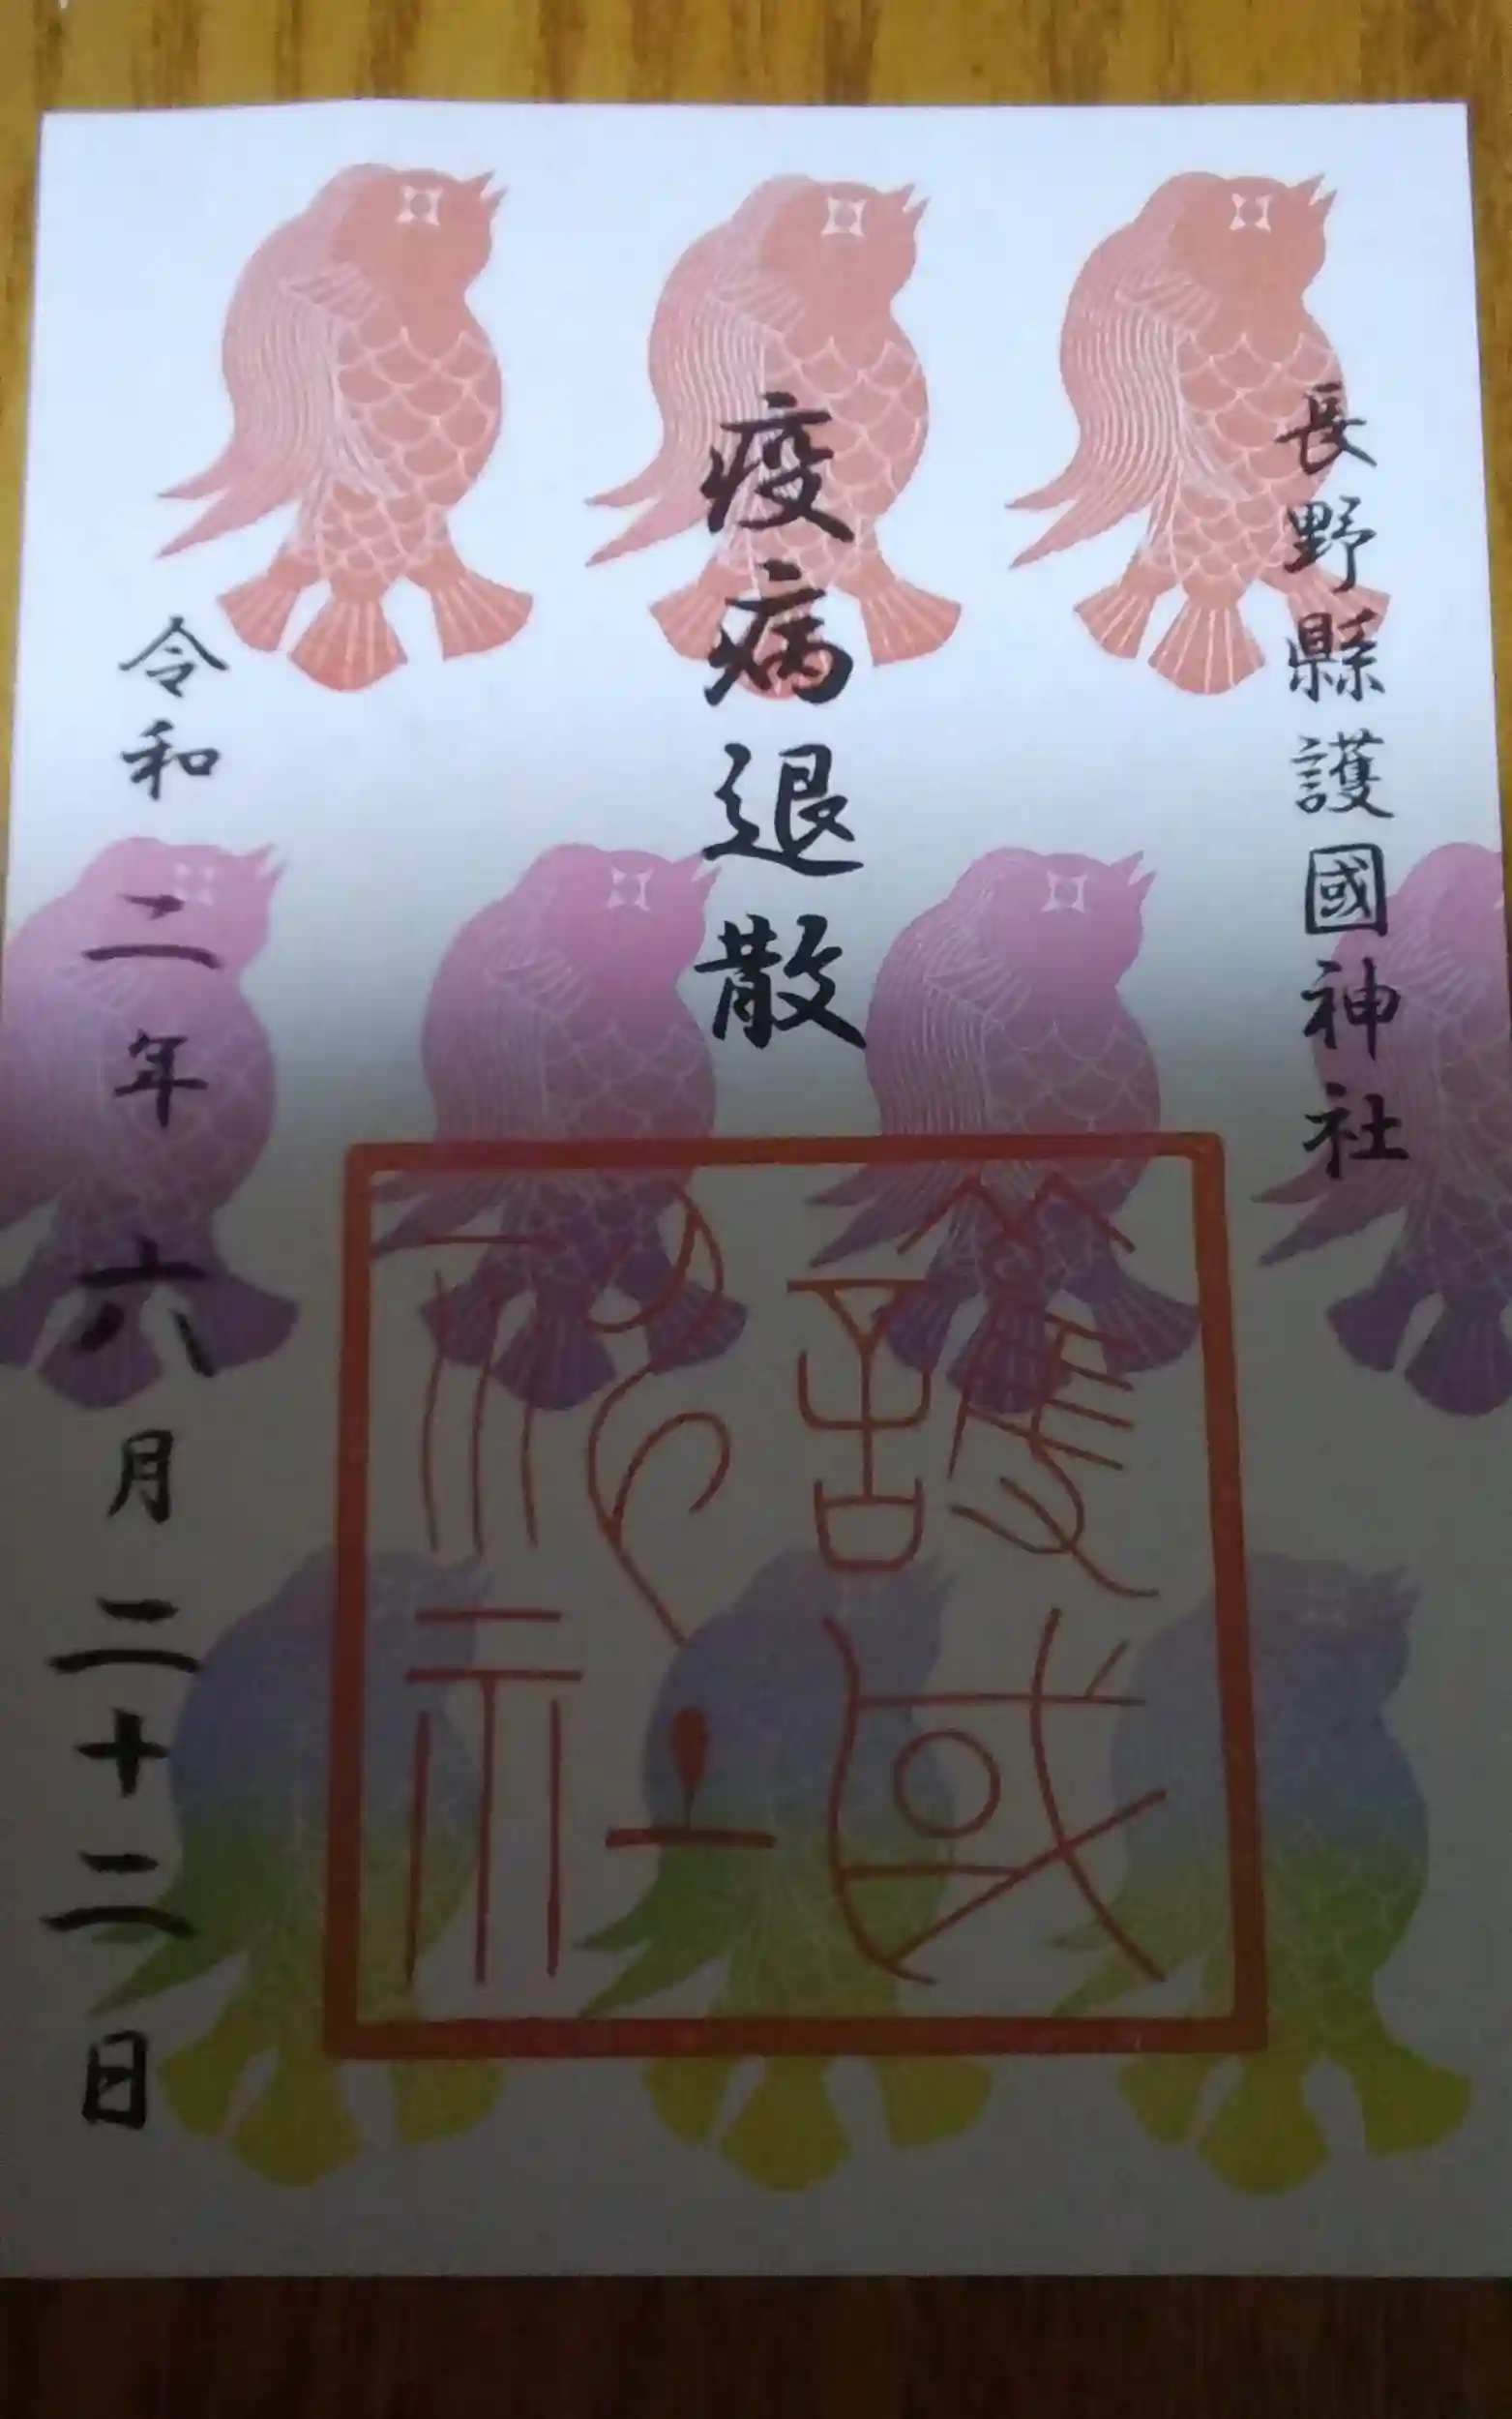 長野縣護國神社
疫病退散
令和二年六月二十二日
護國
神社